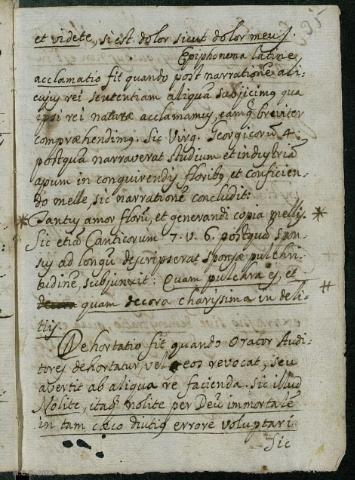 et videte, si est dolor sicut dolor meus.
Epiphonema latine
acclamatio fit quando post narratione ali-
cujus rei sententiam aliqua subjicimus qua
ipsi rei natæ acclamamus, eamq breviter
compræhendimus. Sic Virg. Georgicorū 4.
postquā narraverat studium et industriā
apum in conquirendis floribus, et conficien-
do melle sic narrationē concludit:
* Tantus amor florū, et generandi copia mellis. *
Sic etiā Canticorum 7. v. 6. postquā spon-
sus ad longū descripserat sponsæ pulchri-
tudine, subjunxit: Quam pulchra es, et
quam decora charissima in deli- #
tiis
Dehortatio fit quando Orator Audi-
tores dehortatur, vel eos revocat, seu
avertit ab aliqua re facienda. Sic illud
Nolite, itaq nolite per Deū immortalē
in tam cæco diutius errore voluptari
Sic